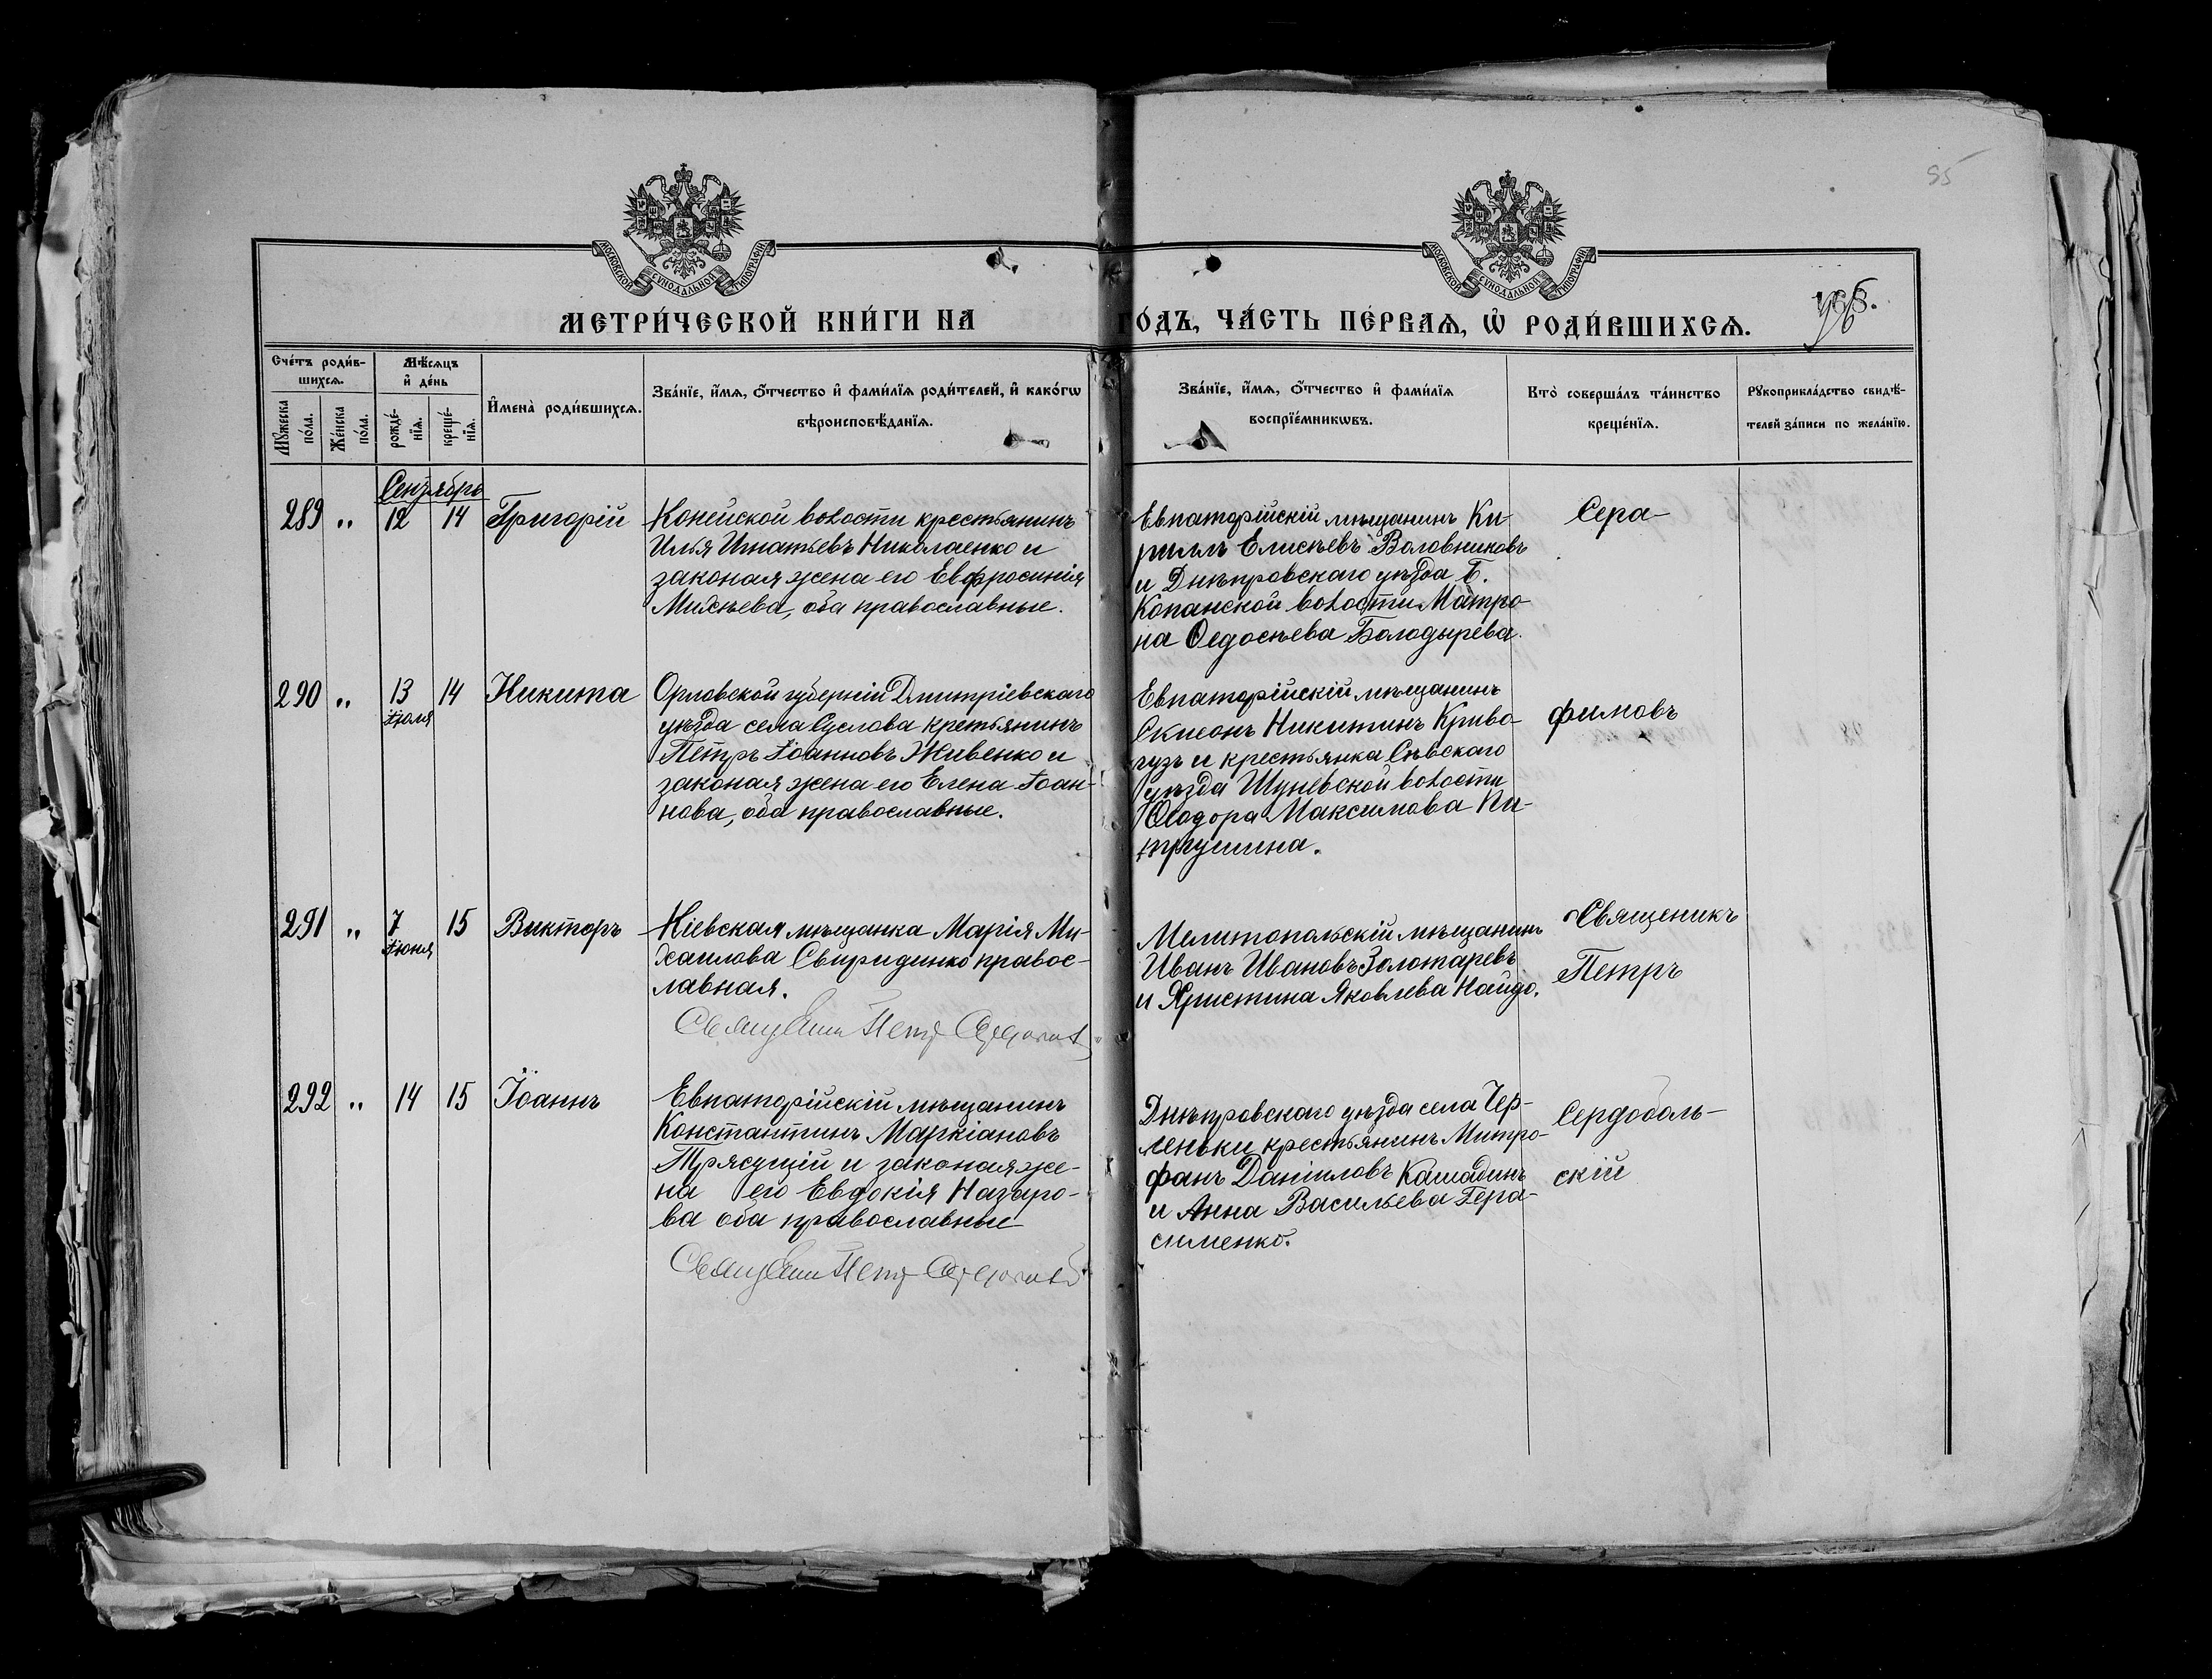 85
МОСКОВСКОЙ СѴНОДАЛЬНОЙ ТИПОГРАФІИ
МОСКОВСКОЙ СѴНОДАЛЬНОЙ ТИПОГРАФІИ
МЕТРИ́ЧЕСКОЙ КНИ́ГИ НА
ГО́ДЪ, ЧА́СТЬ ПЕ́РВАѦ, Ѡ҆ РОДИ́ВШИХСѦ.
Сче́тъ роди́в-
шихсѧ.
Мѣ́сѧцъ
и҆ де́нь
Мꙋ́жеска по́ла.
Же́нска по́ла.
рожде́-
нїѧ.
креще́-
нїѧ.
И҆мена̀ роди́вшихсѧ.
Зва́нїе, и҆́мѧ, ѻ҆́тчество и҆ фами́лїѧ роди́телей, и҆ како́гѡ
вѣроисповѣ́данїѧ.
Зва́нїе, и҆́мѧ, ѻ҆́тчество и҆ фами́лїѧ
воспрїе́мникѡвъ.
Кто̀ соверша́лъ та́инство
креще́нїѧ.
Рꙋкоприкла́дство свидѣ́-
телей за́писи по жела́нїю.
Сентябрь
289 " 12 14 Григорій
Конейской волости крестьянинъ
Илья Игнатьевъ Николаенко и
законая жена его Евфросинія
оба православные.
Евпаторійскій мѣщанинъ Ки-
риллъ Елисѣевъ Воловниковъ
и Днѣпровскаго уѣзда Б.
Копанской волости Матро-
на Ѳедосѣева Болодырева.
Сера-
290 " 13 14 Никита
Іюля
Орловской губерніи Дмитріевскаго
уѣзда села Суслова кретьянинъ
Петръ Іоанновъ Живенко и
законая жена его Елена Іоан-
нова, оба православные.
Евпаторійскій мѣщанинъ
Никитинъ Криво-
гузъ и крестьянка Сѣвскаго
уѣзда Шуневской волости
Ѳеодора Максимова Пи-
трушина.
фимовъ
291 " 7 15 Викторъ
Іюня
Кіевская мѣщанка Марія Ми-
хаилова Свиридинко правос-
лавная.
Мелитопольскій мѣщанинъ
Иванъ Ивановъ Золотаревъ
и Христина Яковлева Найдо.
Священикъ
Петръ
292 " 14 15 Іоаннъ
Евпаторійскій мѣщанинъ
Константинъ Маркіановъ
Трясущій и законая же-
на его Евдокія Назаро-
ва оба православные
Днѣпровскаго уѣзда села Чер-
леньки крестьянинъ Митро-
фанъ Даніиловъ Кашадинъ
и Анна Васильева Гера-
сименко.
Сердоболь-
скій